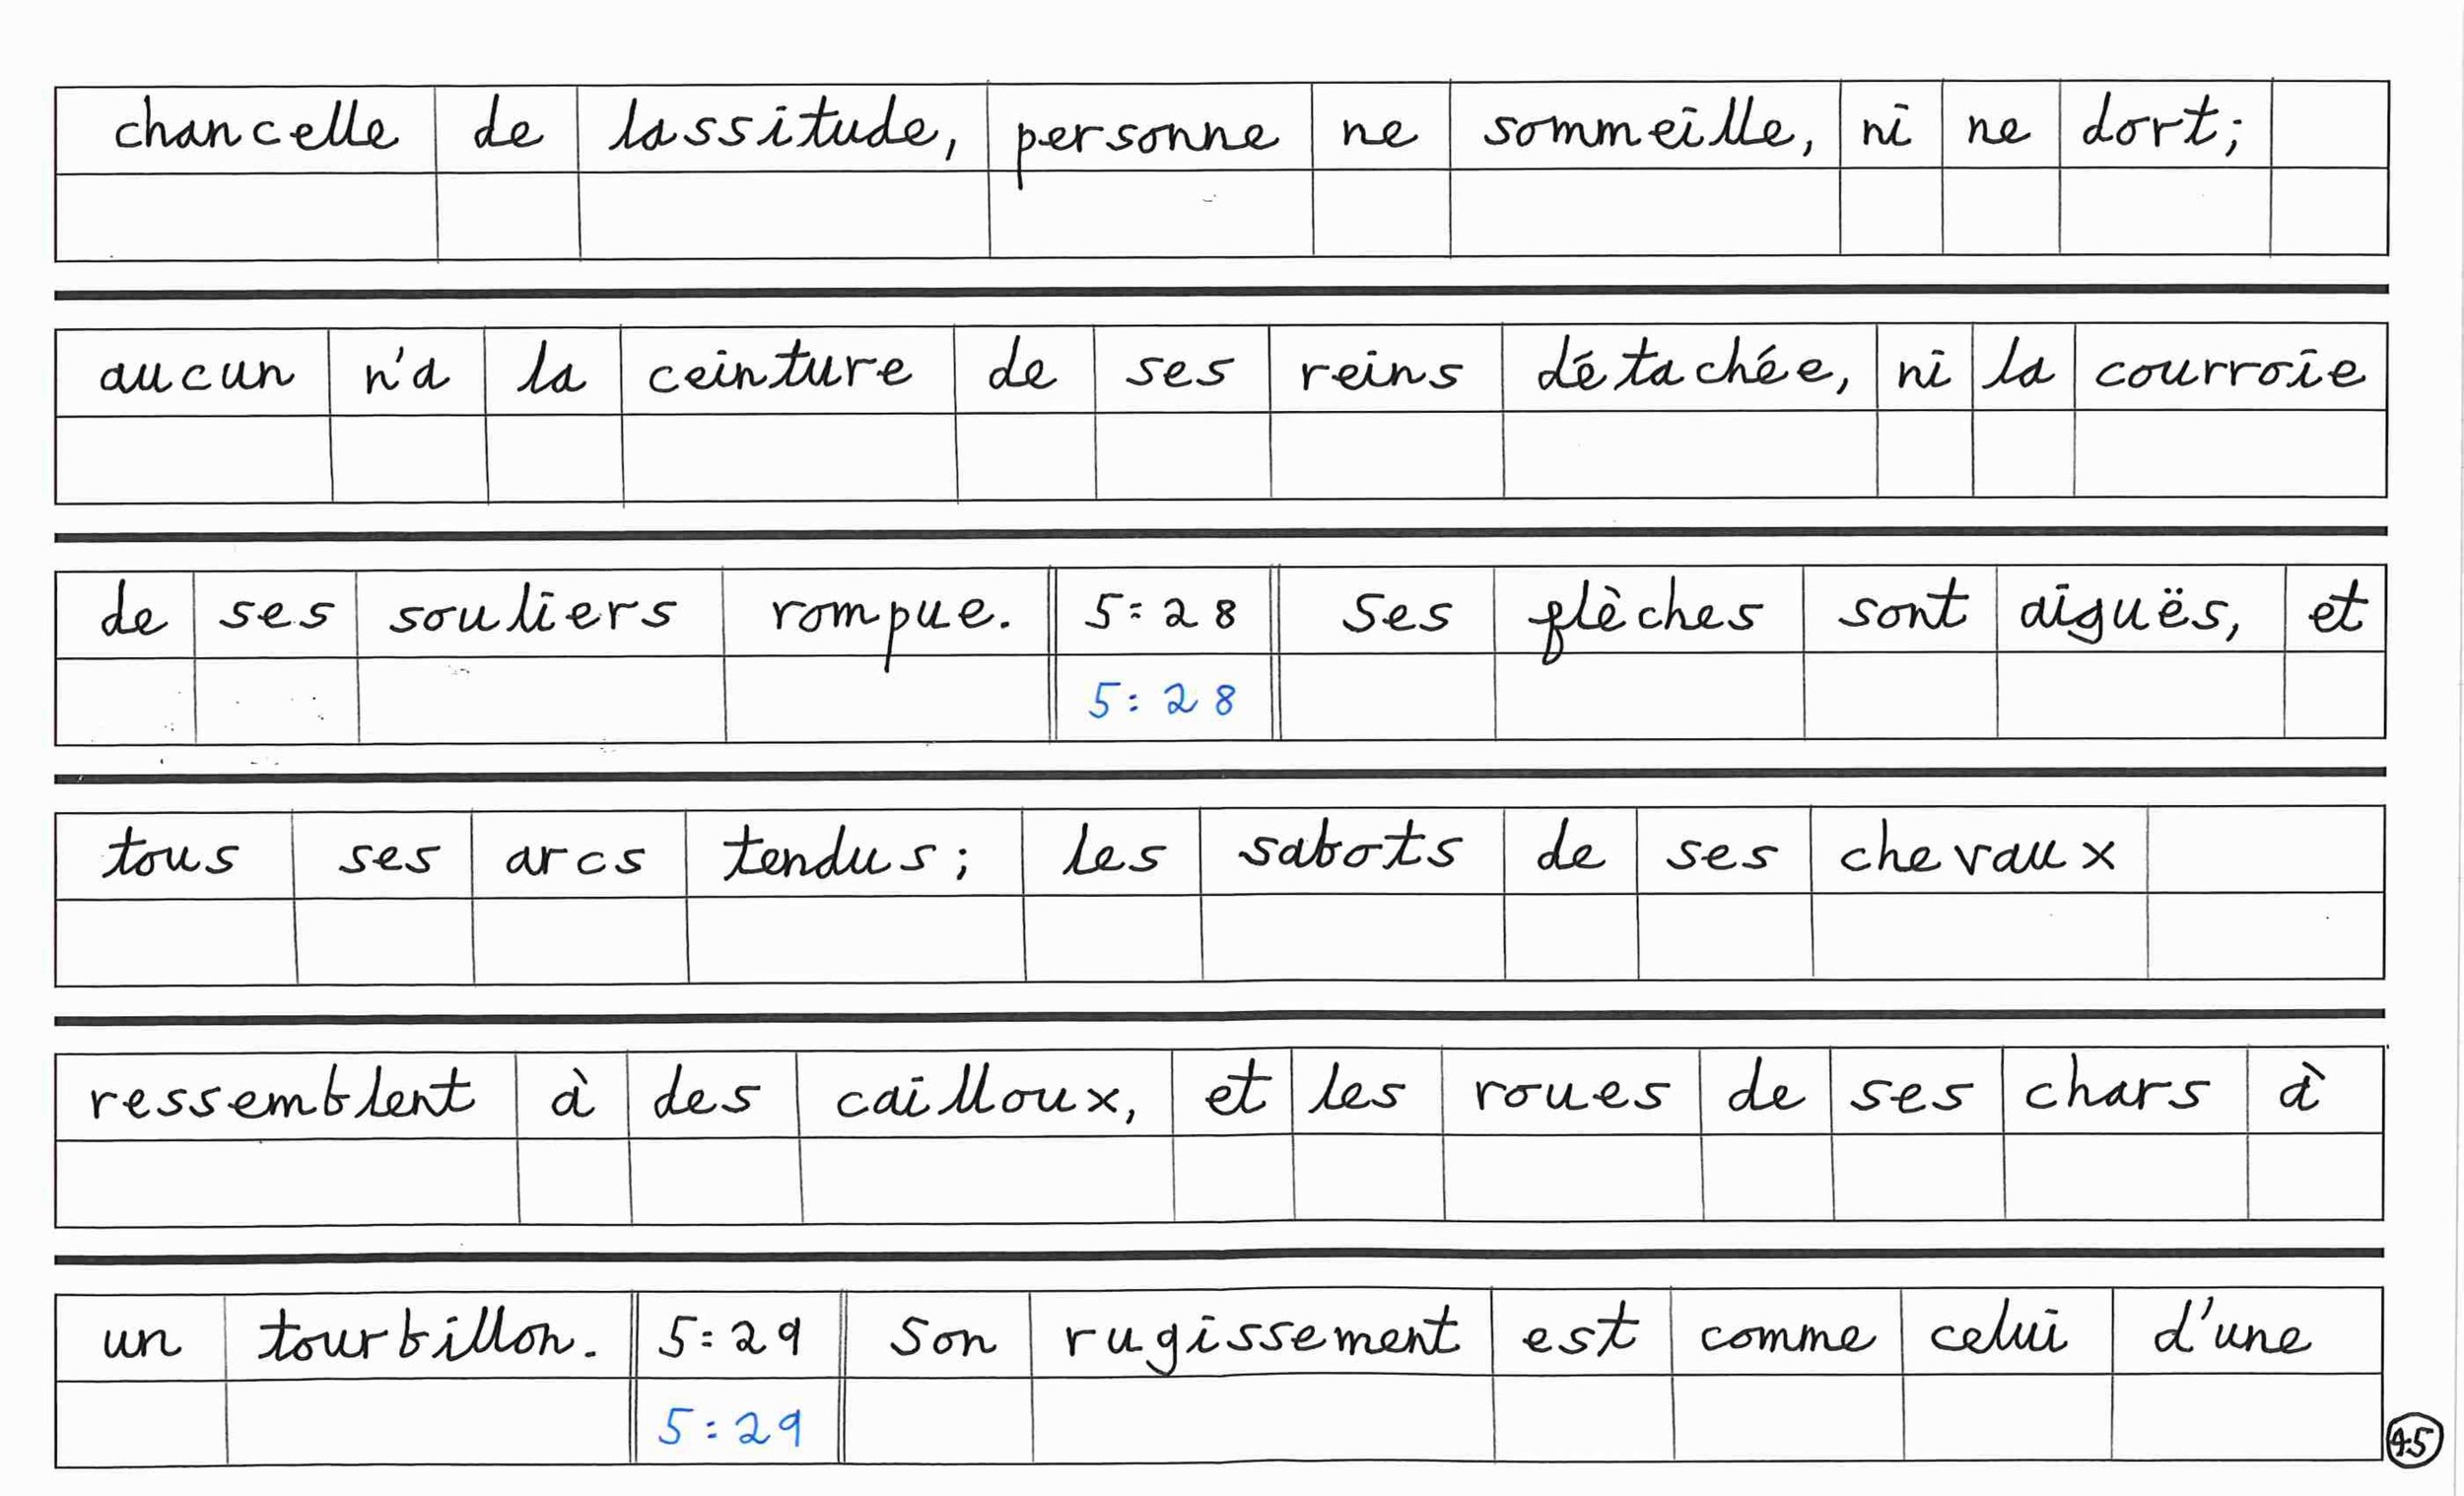 chancelle de lassitude, personne ne sommeille, ni ne dort;
aucun n'a la ceinture de ses reins détachée, ni la courroie
de ses souliers rompue. 5:28 Ses flèches sont aiguës, et
5:28
tous ses arcs tendus; les sabots de ses chevaux
ressemblent à des cailloux, et les roues de ses chars à
un tourbillon. 5:29 Son rugissement est comme celui d'une
5:29
45